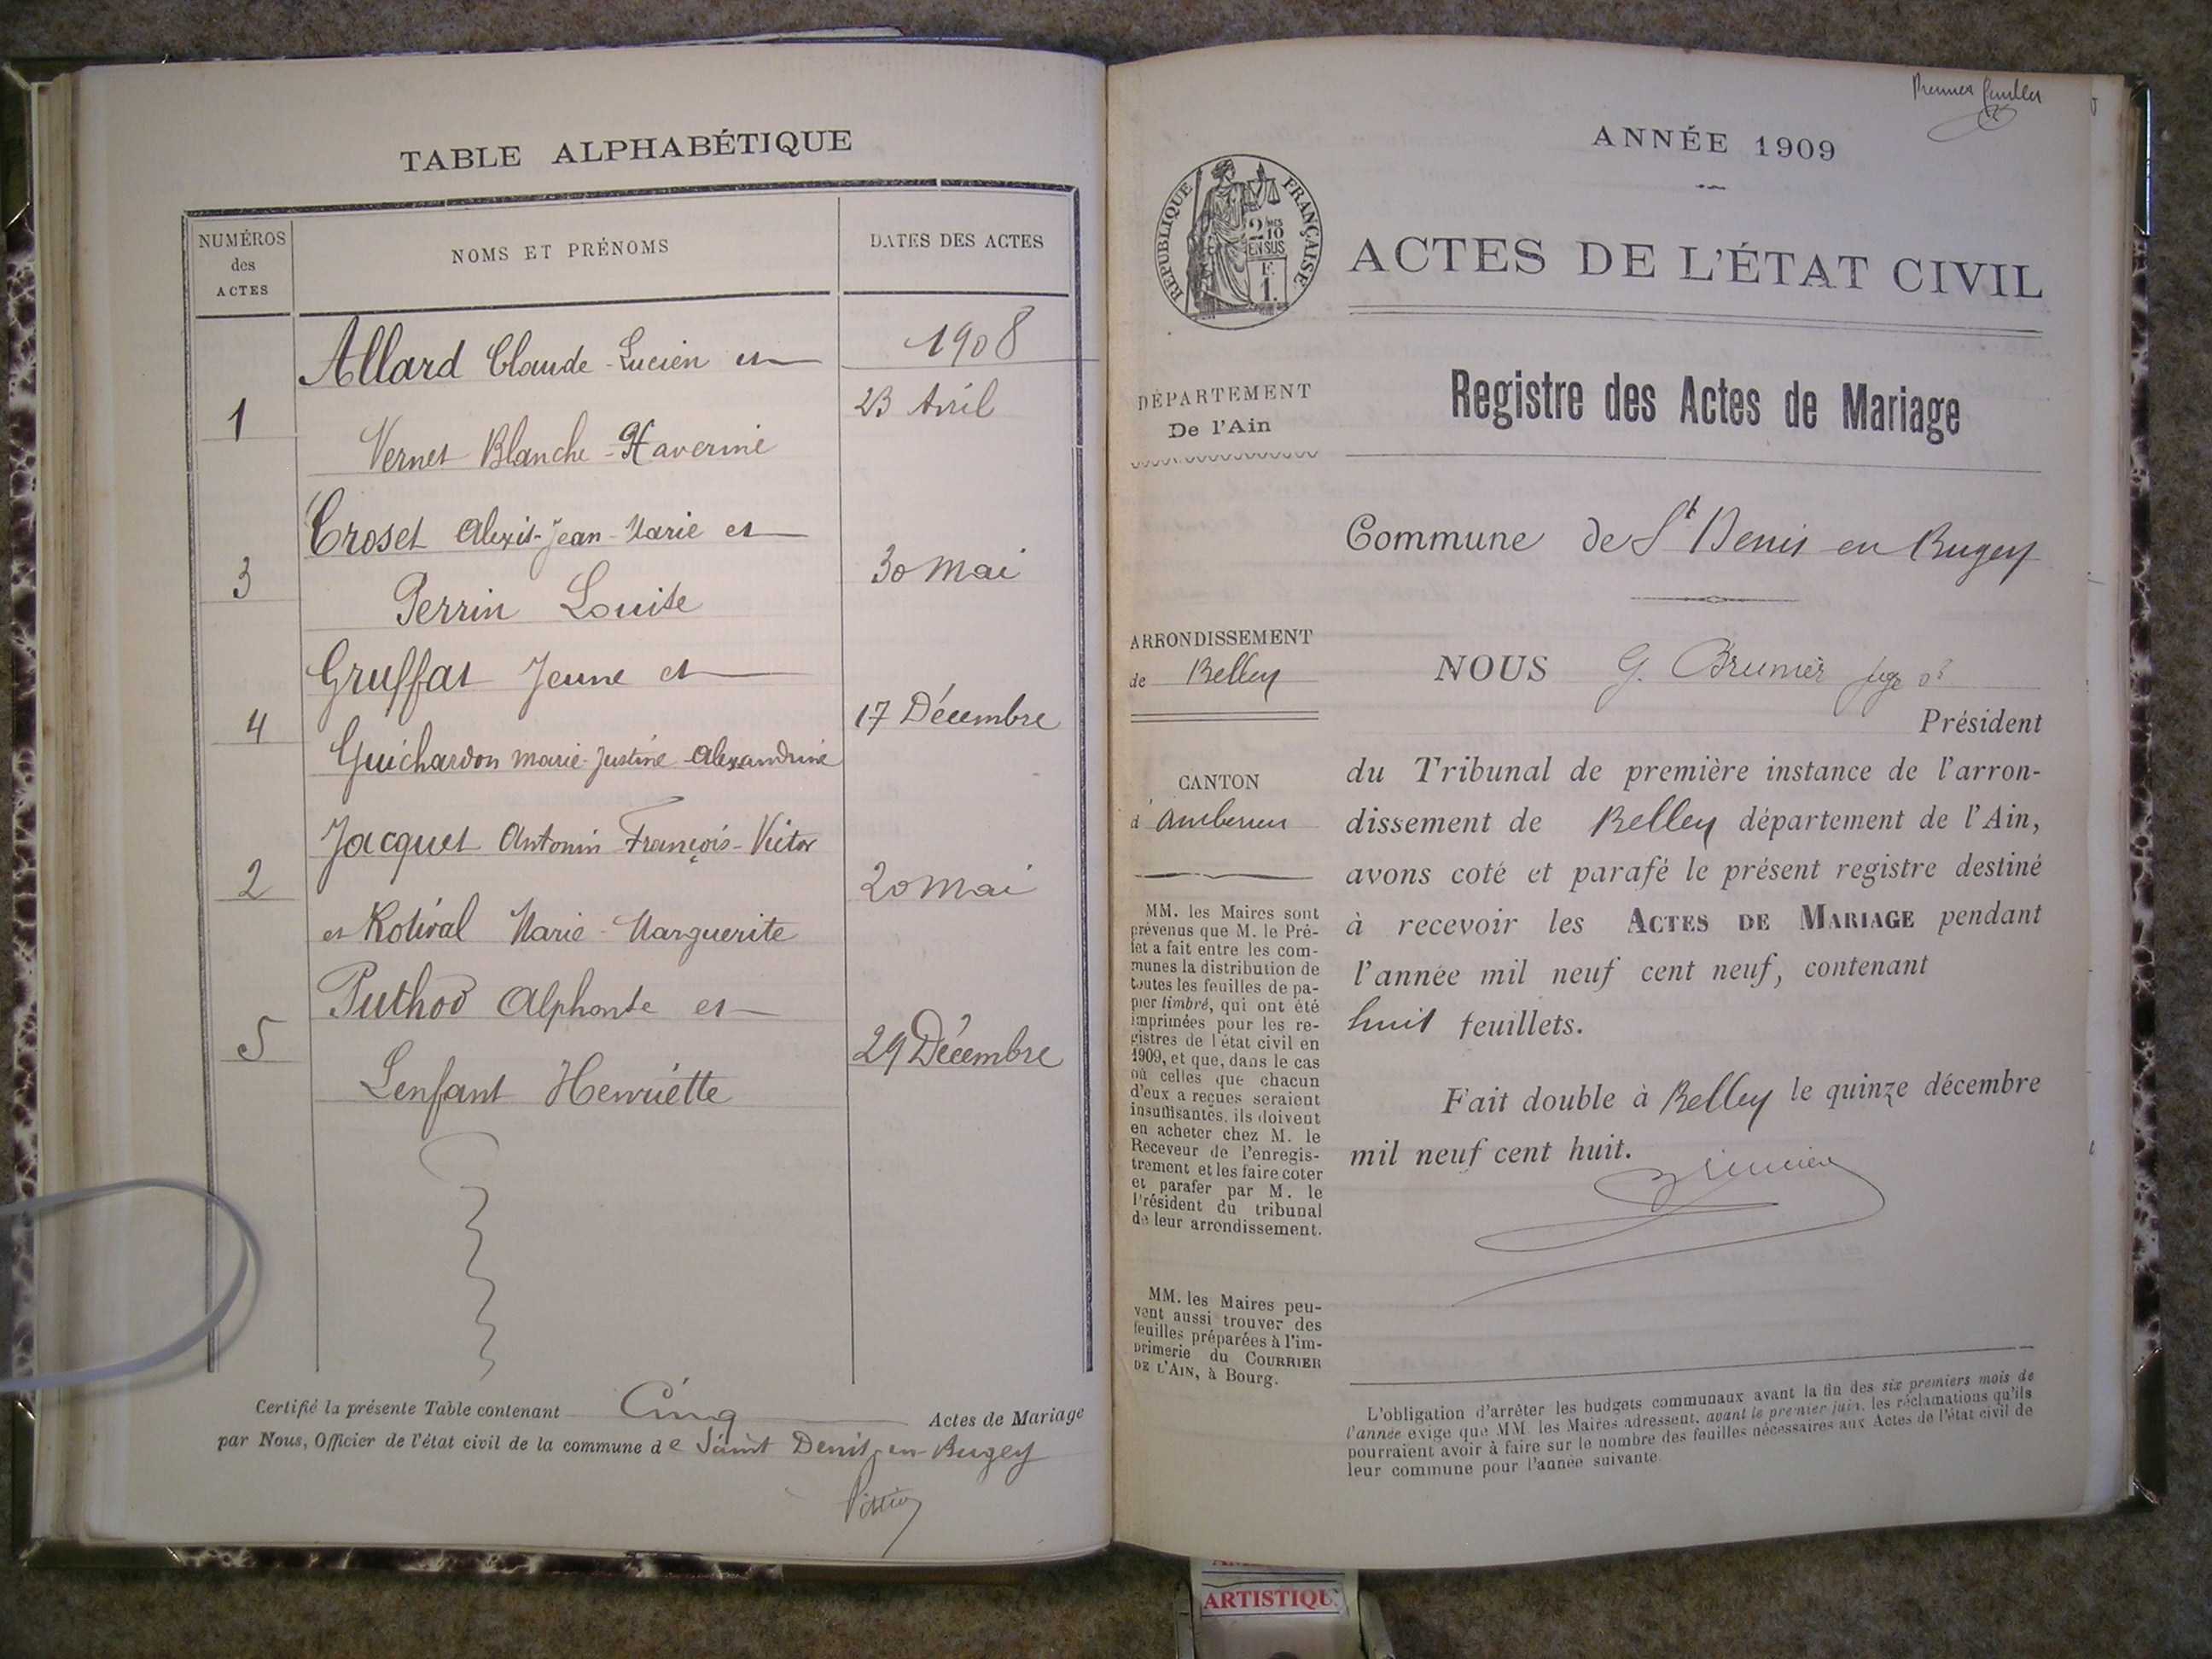 TABLE ALPHABÉTIQUE
NUMÉROS
des
ACTES
NOMS ET PRÉNOMS
DATES DES ACTES
1908
Allard Claude-Lucien et
1
23 Avril
Vernet Blanche-Xaverine
Croset Alexis-Jean-Marie et
3
30 Mai
Perrin Louise
Gruffat Jeune et
4
17 Décembre
Guichardon Marie-Justine-Alexandrine
Jacquet Antonin François-Victor
2
20 Mai
et Rotival Marie-Marguerite
Puthod Alphonse et
5
29 Décembre
Lenfant Henriette
Certifié la présente Table contenant Cinq Actes de Mariage
par Nous, Officier de l'état civil de la commune de Saint Denis-en-Bugey
ANNÉE 1909
RÉPUBLIQUE FRANÇAISE
2/10
EN SUS
F.
1.
ACTES DE L'ÉTAT CIVIL
DÉPARTEMENT
De l'Ain
Registre des Actes de Mariage
Commune de St Denis en Bugey
ARRONDISSEMENT
de Belley
CANTON
NOUS G. Brunier juge
Président
du Tribunal de première instance de l'arron-
dissement de Belley département de l'Ain,
avons coté et parafé le présent registre destiné
à recevoir les ACTES DE MARIAGE pendant
l'année mil neuf cent neuf, contenant
huit feuillets.
Fait double à Belley le quinze décembre
mil neuf cent huit.
MM. les Maires sont
prévenus que M. le Pré-
fet a fait entre les com-
munes la distribution de
toutes les feuilles de pa-
pier timbré, qui ont été
imprimées pour les re-
gistres de l'état civil en
1909, et que, dans le cas
où celles que chacun
d'eux a reçues seraient
insuffisantes, ils doivent
en acheter chez M. le
Receveur de l'enregis-
trement et les faire coter
et parafer par M. le
Président du tribunal
de leur arrondissement.
MM. les Maires peu-
vent aussi trouver des
feuilles préparées à l'im-
primerie du COURRIER
DE L'AIN, à Bourg.
L'obligation d'arrêter les budgets communaux avant la fin des six premiers mois de
l'année exige que MM. les Maires adressent, avant le premier juin, les réclamations qu'ils
pourraient avoir à faire sur le nombre des feuilles nécessaires aux Actes de l'état civil de
leur commune pour l'année suivante
ARTISTIQU